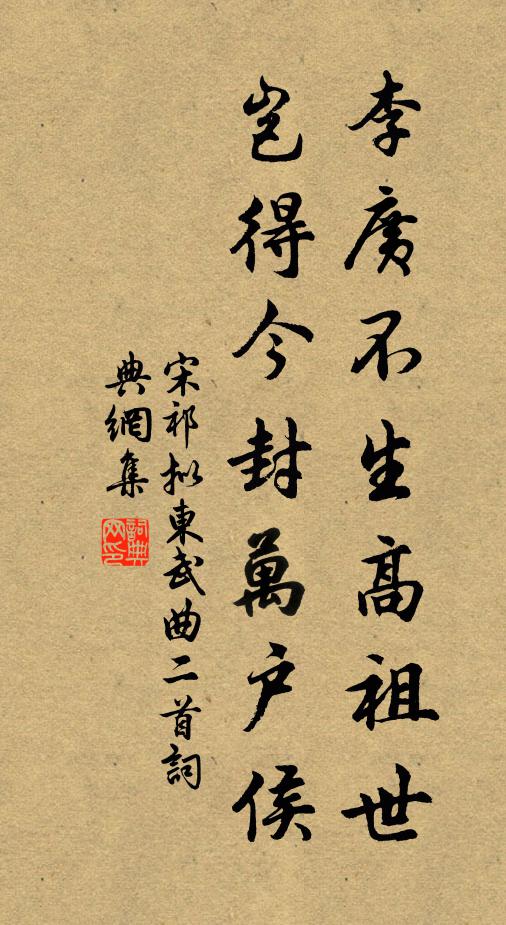 李廣不生高祖世
豈得今封萬户侯
宋祁拟東武曲二首詞
典網集
詞典
网印